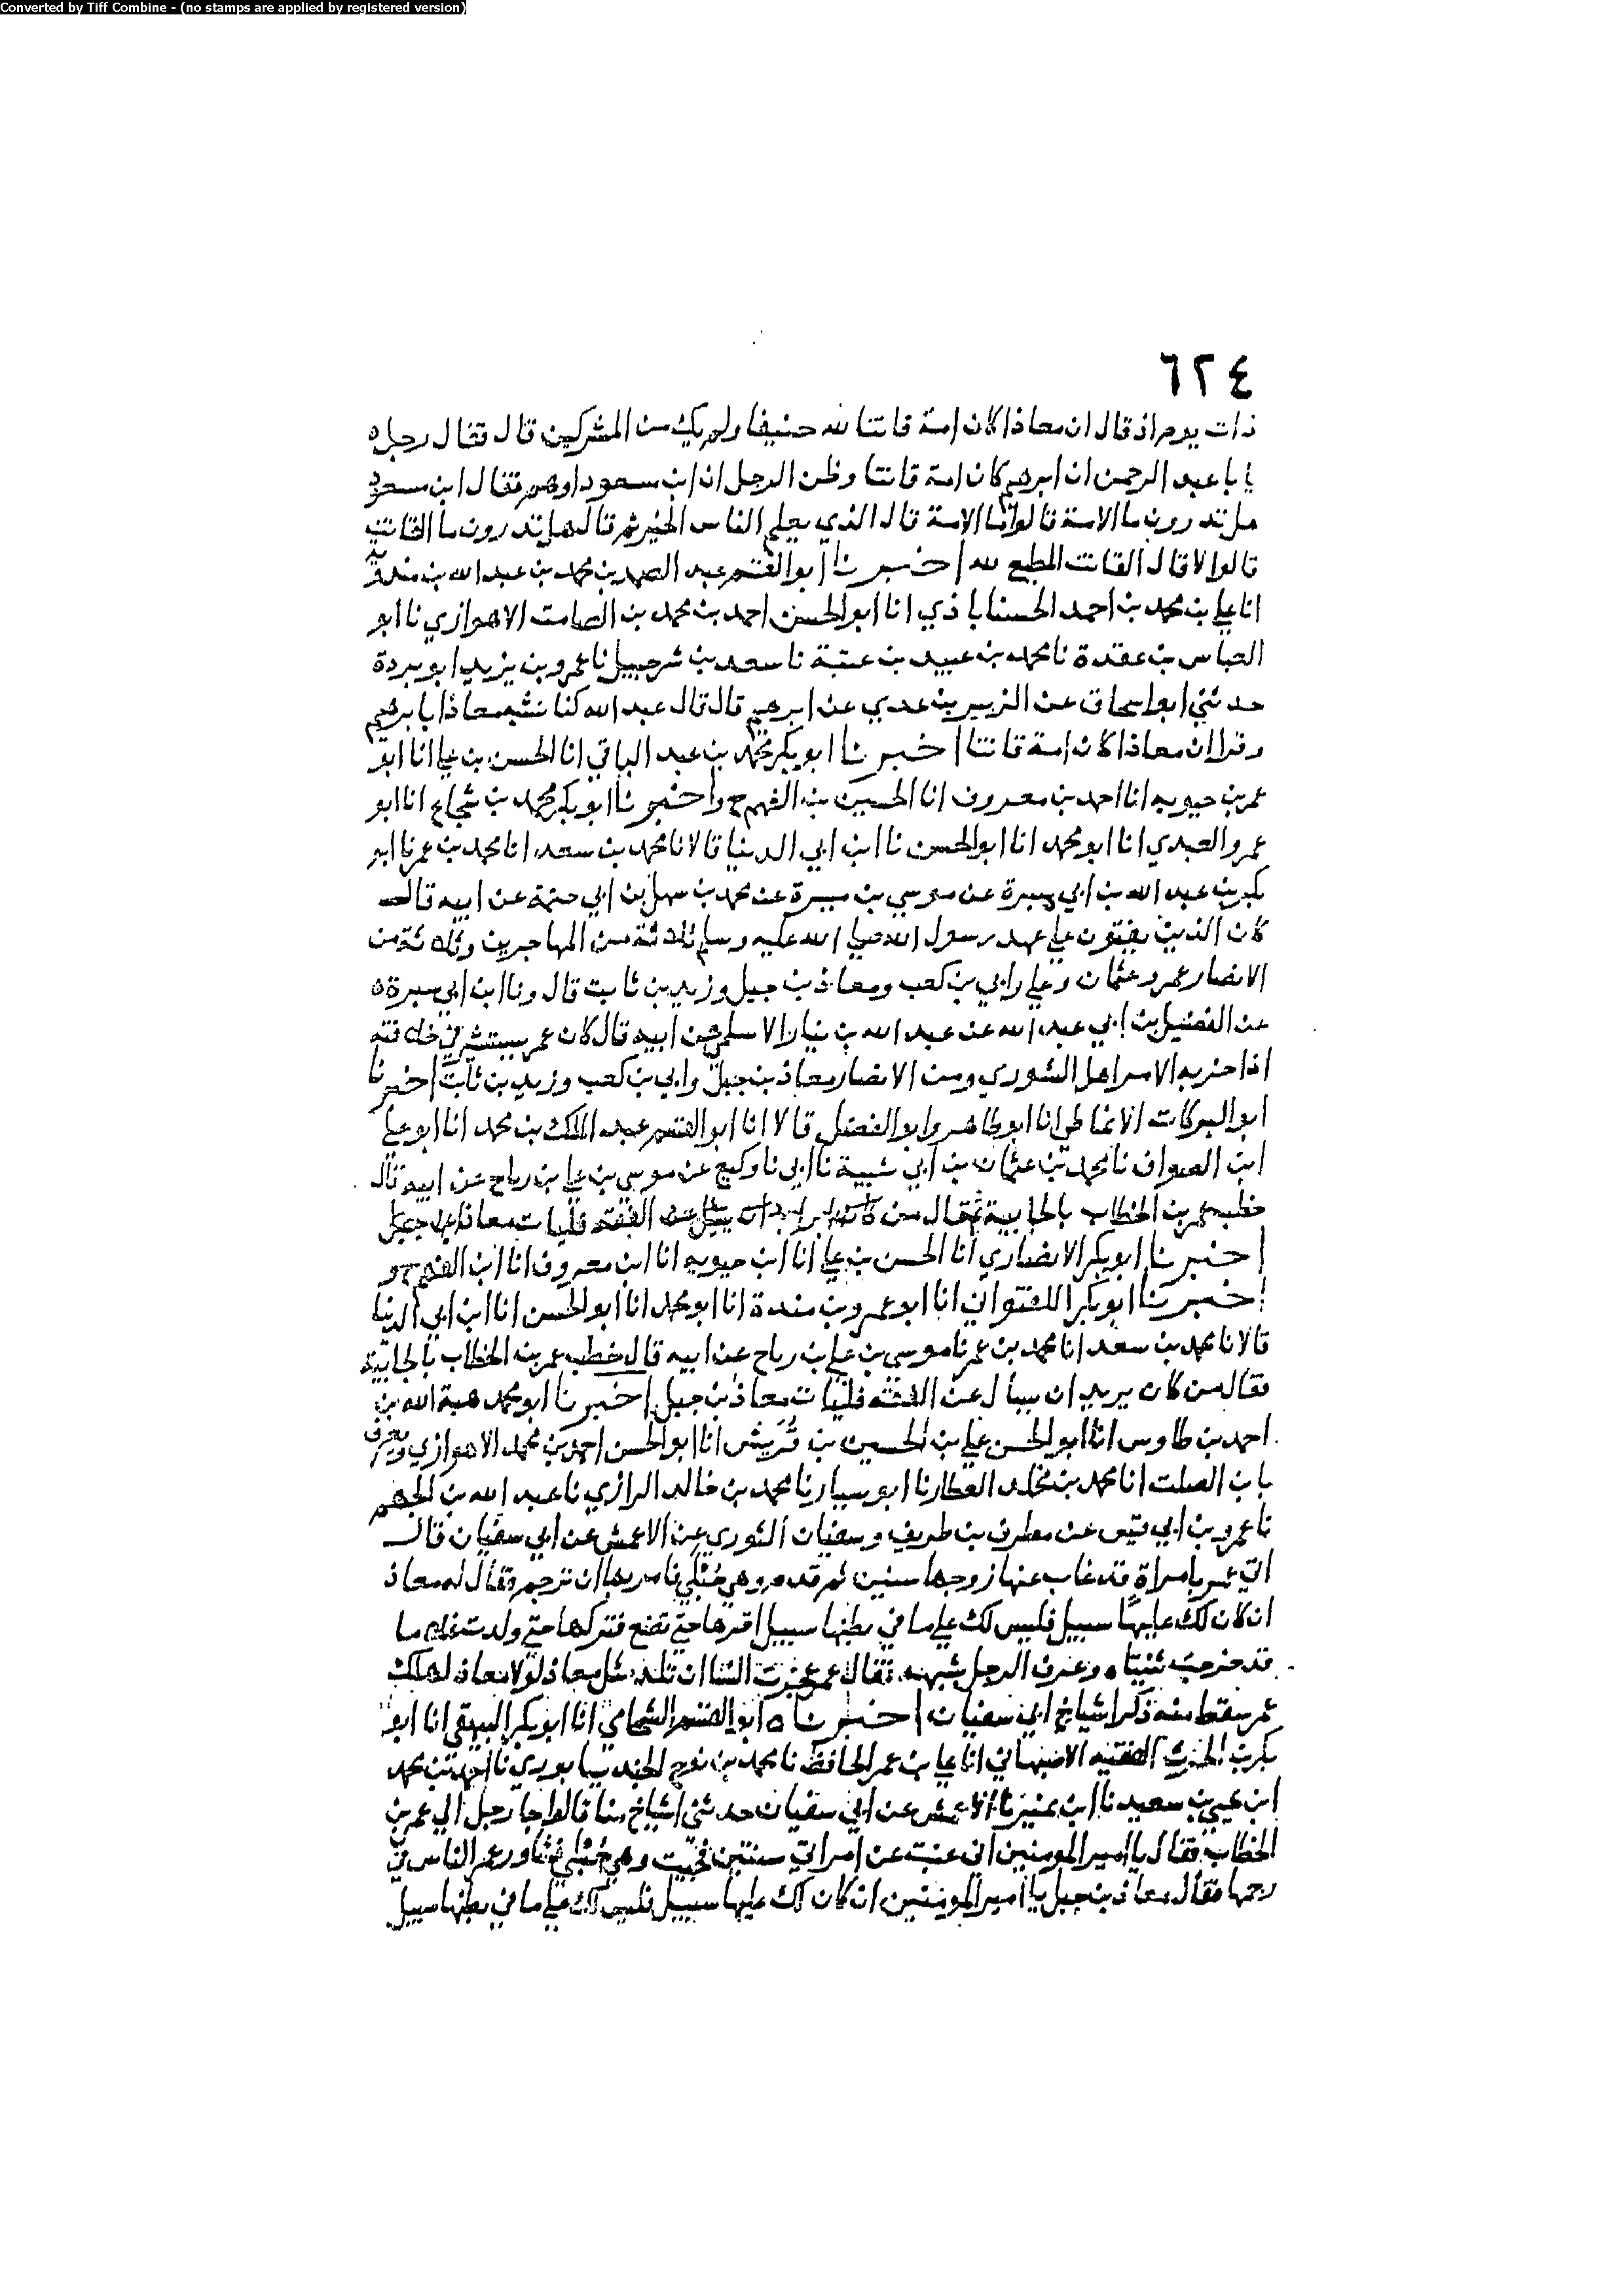 Converted by Tiff Combine - (no stamps are applied by registered version)
٦٢٤
ذات يوم اذ قال ان معاذا كان امة قانتا لله حنيفا ولم يك من المشركين قال فقال رجل
يا با عبد الرحمن ان ابرهيم كان امة قانتا وظن الرجل ان ابن مسعود اوهم فقال ابن مسعود
هل تدرون ما الامة قالوا ما الامة قال الذي يعلم الناس الخير ثم قال هل تدرون ما القانت
قالوا لا قال القانت المطيع لله اخبرنا ابو القسم عبد الصمد بن محمد بن عبد الله بن مندويه
انا علي بن محمد بن احمد الحسناباذي انا ابو الحسن احمد بن محمد بن الصامت الاهوازي نا ابو
العباس بن عقدة نا محمد بن عبيد بن عتبة نا سعد بن شرحبيل نا عمرو بن يزيد ابو بردة
حدثني ابو اسحاق عن الزبير بن عدي عن ابرهيم قال قال عبد الله كنا نشبه معاذا بابرهيم
وقرا ان معاذا كان امة قانتا اخبرنا ابو بكر محمد بن عبد الباقي انا الحسن بن علي انا ابو
عمر بن حيويه انا احمد بن معروف انا الحسين بن الفهم ح واخبرنا ابو بكر محمد بن شجاع انا ابو
عمرو العبدي انا ابو محمد انا ابو الحسن نا ابن ابي الدنيا قالا نا محمد بن سعد انا محمد بن عمر نا ابو
بكر بن عبد الله بن ابي سبرة عن موسي بن ميسرة عن محمد بن سهل بن ابي حثمة عن ابيه قال
كان الذين يفتون علي عهد رسول الله صلي الله عليه وسلم ثلاثة من المهاجرين وثلاثة من
الانصار عمر وعثمان وعلي وابي بن كعب ومعاذ بن جبل وزيد بن ثابت قال ونا ابن ابي سبرة
عن الفضيل بن ابي عبد الله عن عبد الله بن نيار الاسلمي عن ابيه قال كان عمر يستشير في خلافته
اذا حزبه الامر اهل الشوري ومن الانصار معاذ بن جبل وابي بن كعب وزيد بن ثابت اخبرنا
ابو البركات الانماطي انا ابو طاهر وابو الفضل قالا انا ابو القسم عبد الملك بن محمد انا ابو علي
ابن الصواف نا محمد بن عثمان بن ابي شيبة نا ابي نا وكيع عن موسي بن علي بن رباح عن ابيه قال
خطب عمر بن الخطاب بالجابية فقال من كان يريد ان يسل عن الفقه فليات معاذ بن جبل
اخبرنا ابو بكر الانصاري انا الحسن بن علي انا ابن حيويه انا ابن معروف انا ابن الفهم ح و
اخبرنا ابو بكر اللفتواني انا ابو عمرو بن مندة انا ابو محمد انا ابو الحسن انا ابن ابي الدنيا
قالا نا محمد بن سعد انا محمد بن عمر نا موسي بن علي بن رباح عن ابيه قال خطب عمر بن الخطاب بالجابية
فقال من كان يريد ان يسال عن الفقه فليات معاذ بن جبل اخبرنا ابو محمد هبة الله بن
احمد بن طاوس انا ابو الحسن علي بن الحسين بن قريش انا ابو الحسن احمد بن محمد الاهوازي ويعرف
بابن الصلت انا محمد بن مخلد العطار نا ابو سيار نا محمد بن خالد الرازي نا عبد الله بن الجهم
نا عمرو بن ابي قيس عن مطرف بن طريف وسفيان الثوري عن الاعمش عن ابي سفيان قال
اتي عمر بامراة قد غاب عنها زوجها سنين ثم قدم وهي حبلي فامر بها ان ترجم فقال له معاذ
ان كان لك عليها سبيل فليس لك علي ما في بطنها سبيل اقرها حتي تضع فتركها حتي ولدت غلاما
قد خرجت ثنيتاه وعرف الرجل شبهه فقال عمر عجزت النسا ان تلد مثل معاذ لولا معاذ لهلك
عمر سقط منه ذكر اشياخ ابي سفيان اخبرناه ابو القسم الشحامي انا ابو بكر البيهقي انا ابو
بكر بن الحرث الفقيه الاصبهاني انا علي بن عمر الحافظ نا محمد بن نوح الجنديسابوري نا احمد بن محمد
ابن يحيي بن سعيد نا ابن نمير نا الاعمش عن ابي سفيان حدثني اشياخ منا قالوا جا رجل الي عمر بن
الخطاب فقال يا امير المومنين اني غبت عن امراتي سنتين فجيت وهي حبلي فشاور عمر الناس في
رجمها فقال معاذ بن جبل يا امير المومنين ان كان لك عليها سبيل فليس لك علي ما في بطنها سبيل